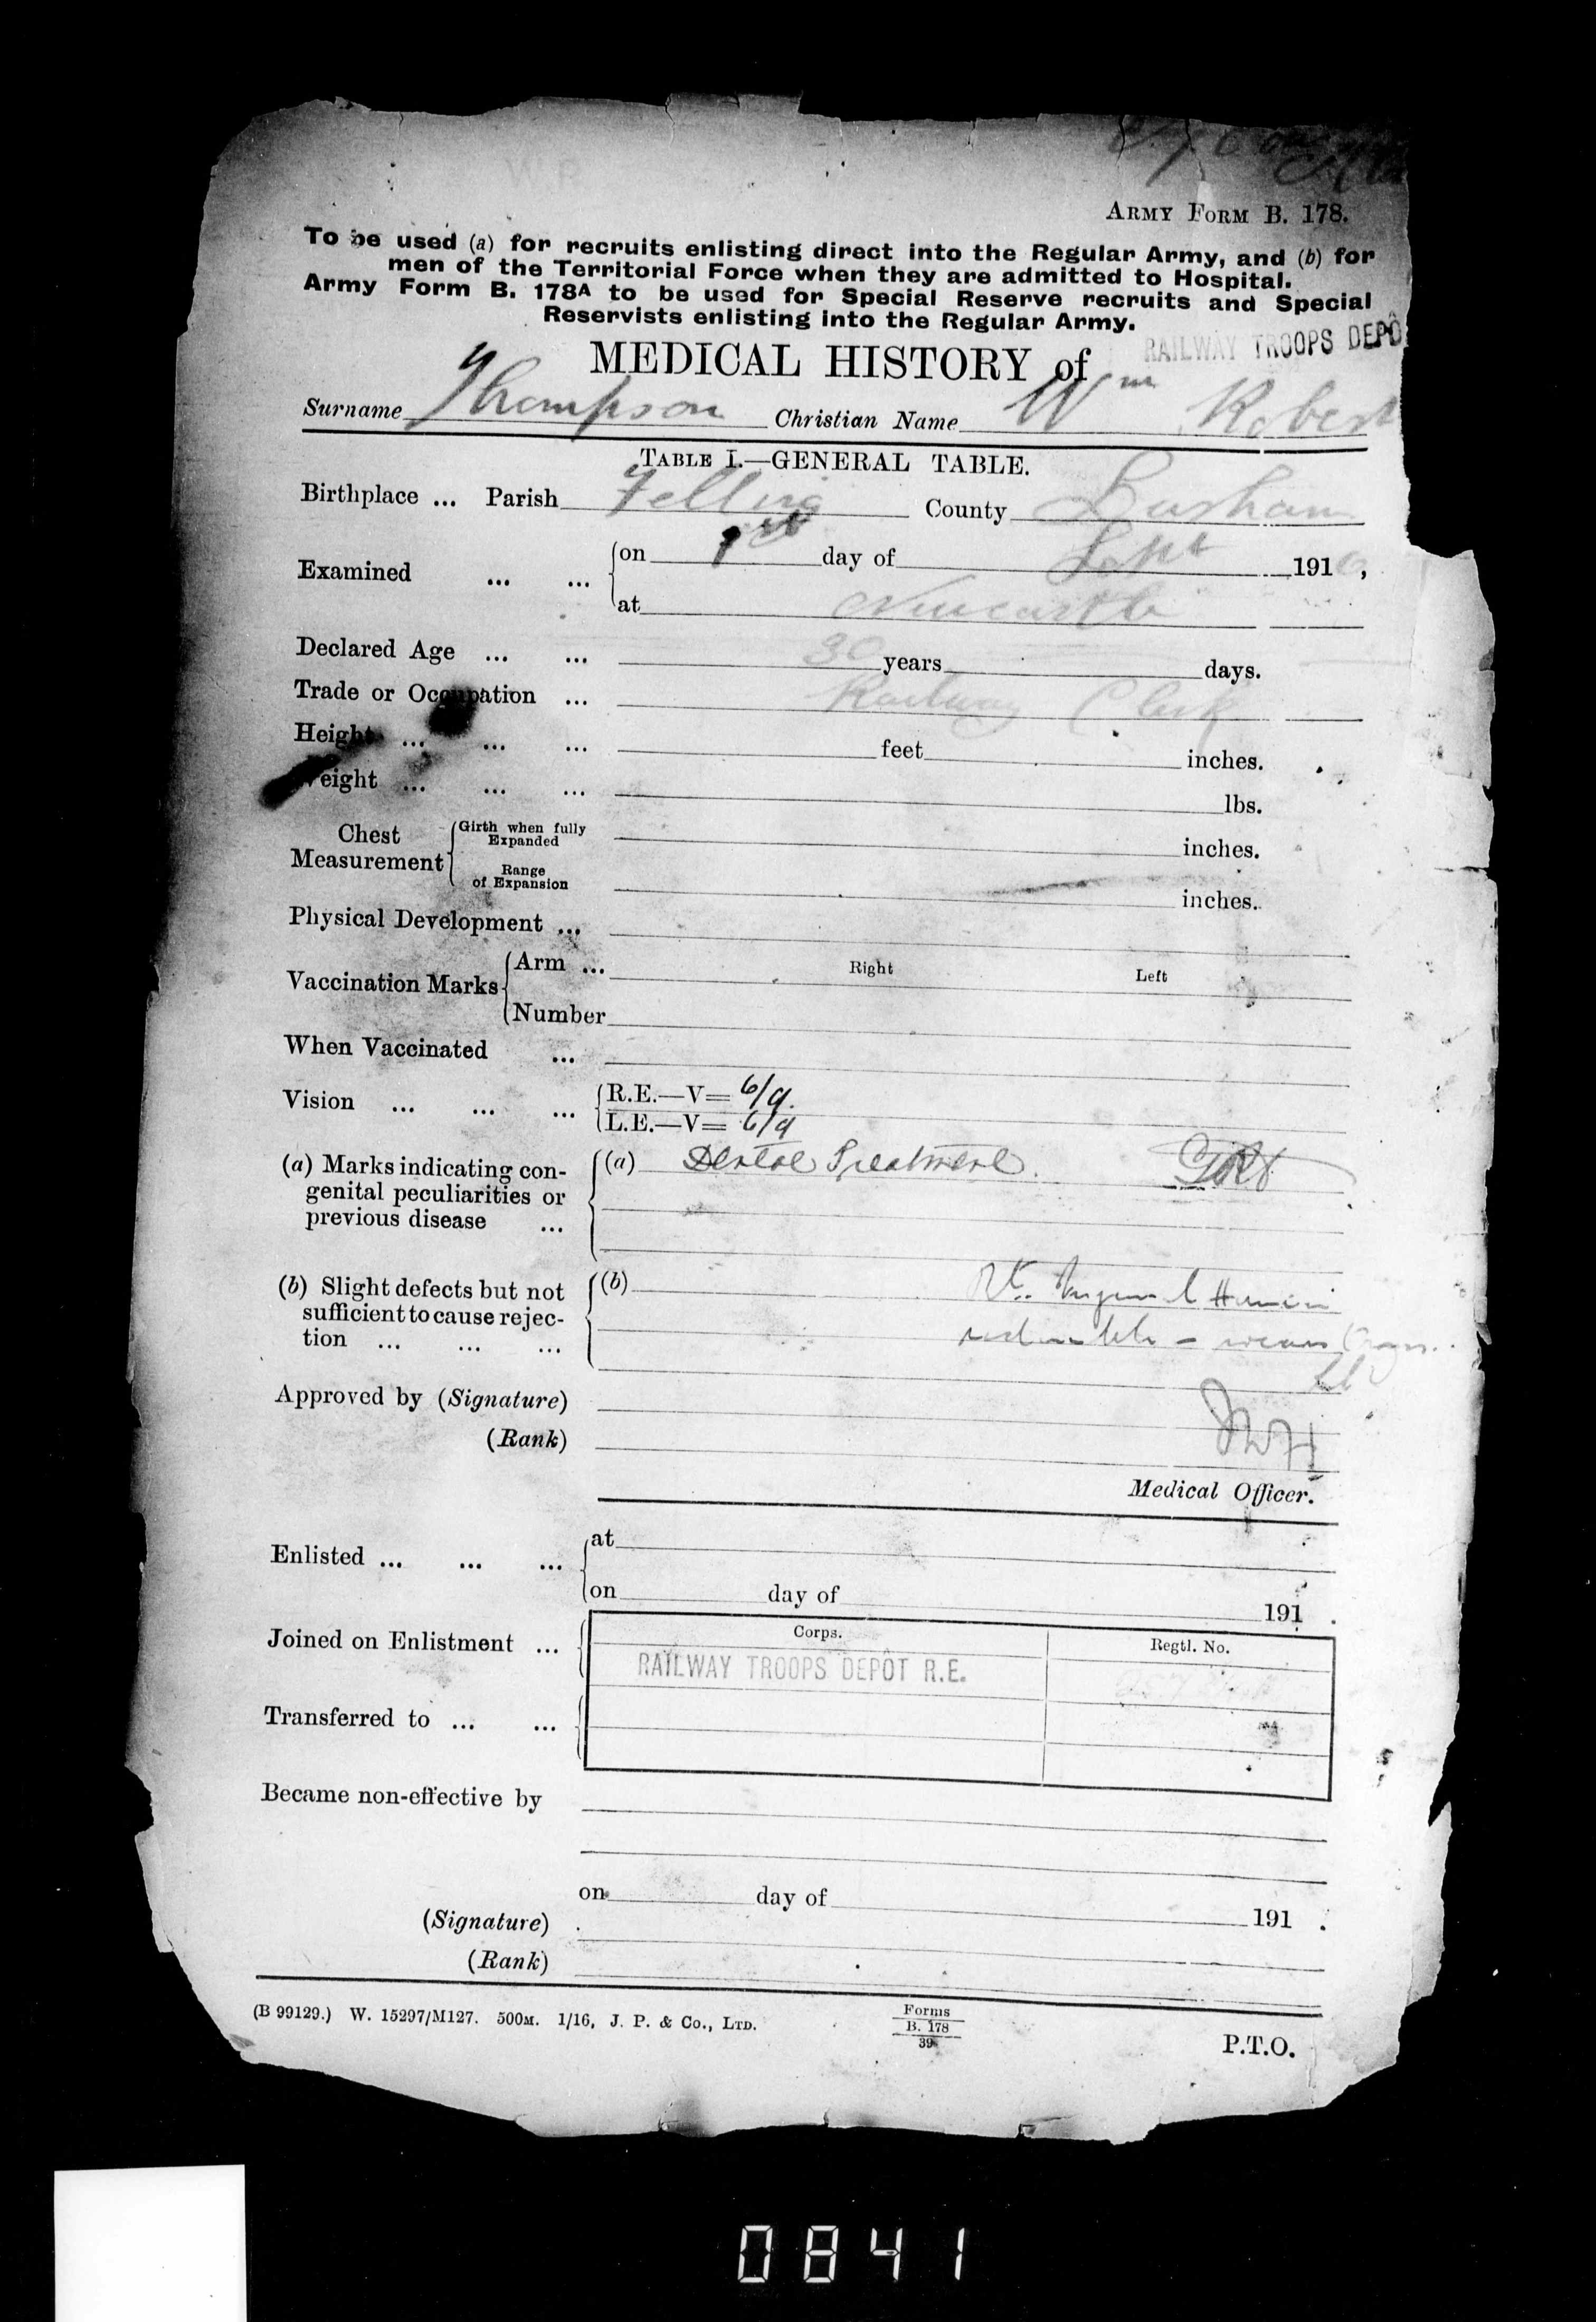 ARMY FORM B. 178.
To be used (a) for recruits enlisting direct into the Regular Army, and (b) for
men of the Territorial Force when they are admitted to Hospital.
Army Form B. 178A to be used for Special Reserve recruits and Special
Reservists enlisting into the Regular Army.
RAILWAY TROOPS DEPÔ
MEDICAL HISTORY of
Surname Thompson Christian Name Wm Robert
TABLE I.—GENERAL TABLE.
Birthplace ... Parish Felling County Durham
Examined ... ... on day of Sept 191 ,
at Newcastle
Declared Age ... ... 30 years days.
Trade or Occupation ... Railway Clerk
Height ... ... ... feet inches.
Weight ... ... ... lbs.
Chest Measurement Girth when fully Expanded inches.
Range of Expansion inches.
Physical Development ...
Vaccination Marks Arm ... Right Left
Number
When Vaccinated ...
Vision ... ... ... R.E.—V= 6/9.
L.E.—V= 6/9
(a) Marks indicating con- (a) Dental Treatment.
genital peculiarities or
previous disease ...
(b) Slight defects but not (b) Rt.
sufficient to cause rejec-
tion ... ... ...
Approved by (Signature)
(Rank)
Medical Officer.
Enlisted ... ... ... at
on day of 191 .
Corps. Regtl. No.
Joined on Enlistment ... RAILWAY TROOPS DEPÔT R.E.
Transferred to ... ...
Became non-effective by
on day of 191 .
(Signature)
(Rank)
(B 99129.) W. 15297/M127. 500M. 1/16, J. P. & Co., LTD.
Forms
B. 178
39
P.T.O.
0841